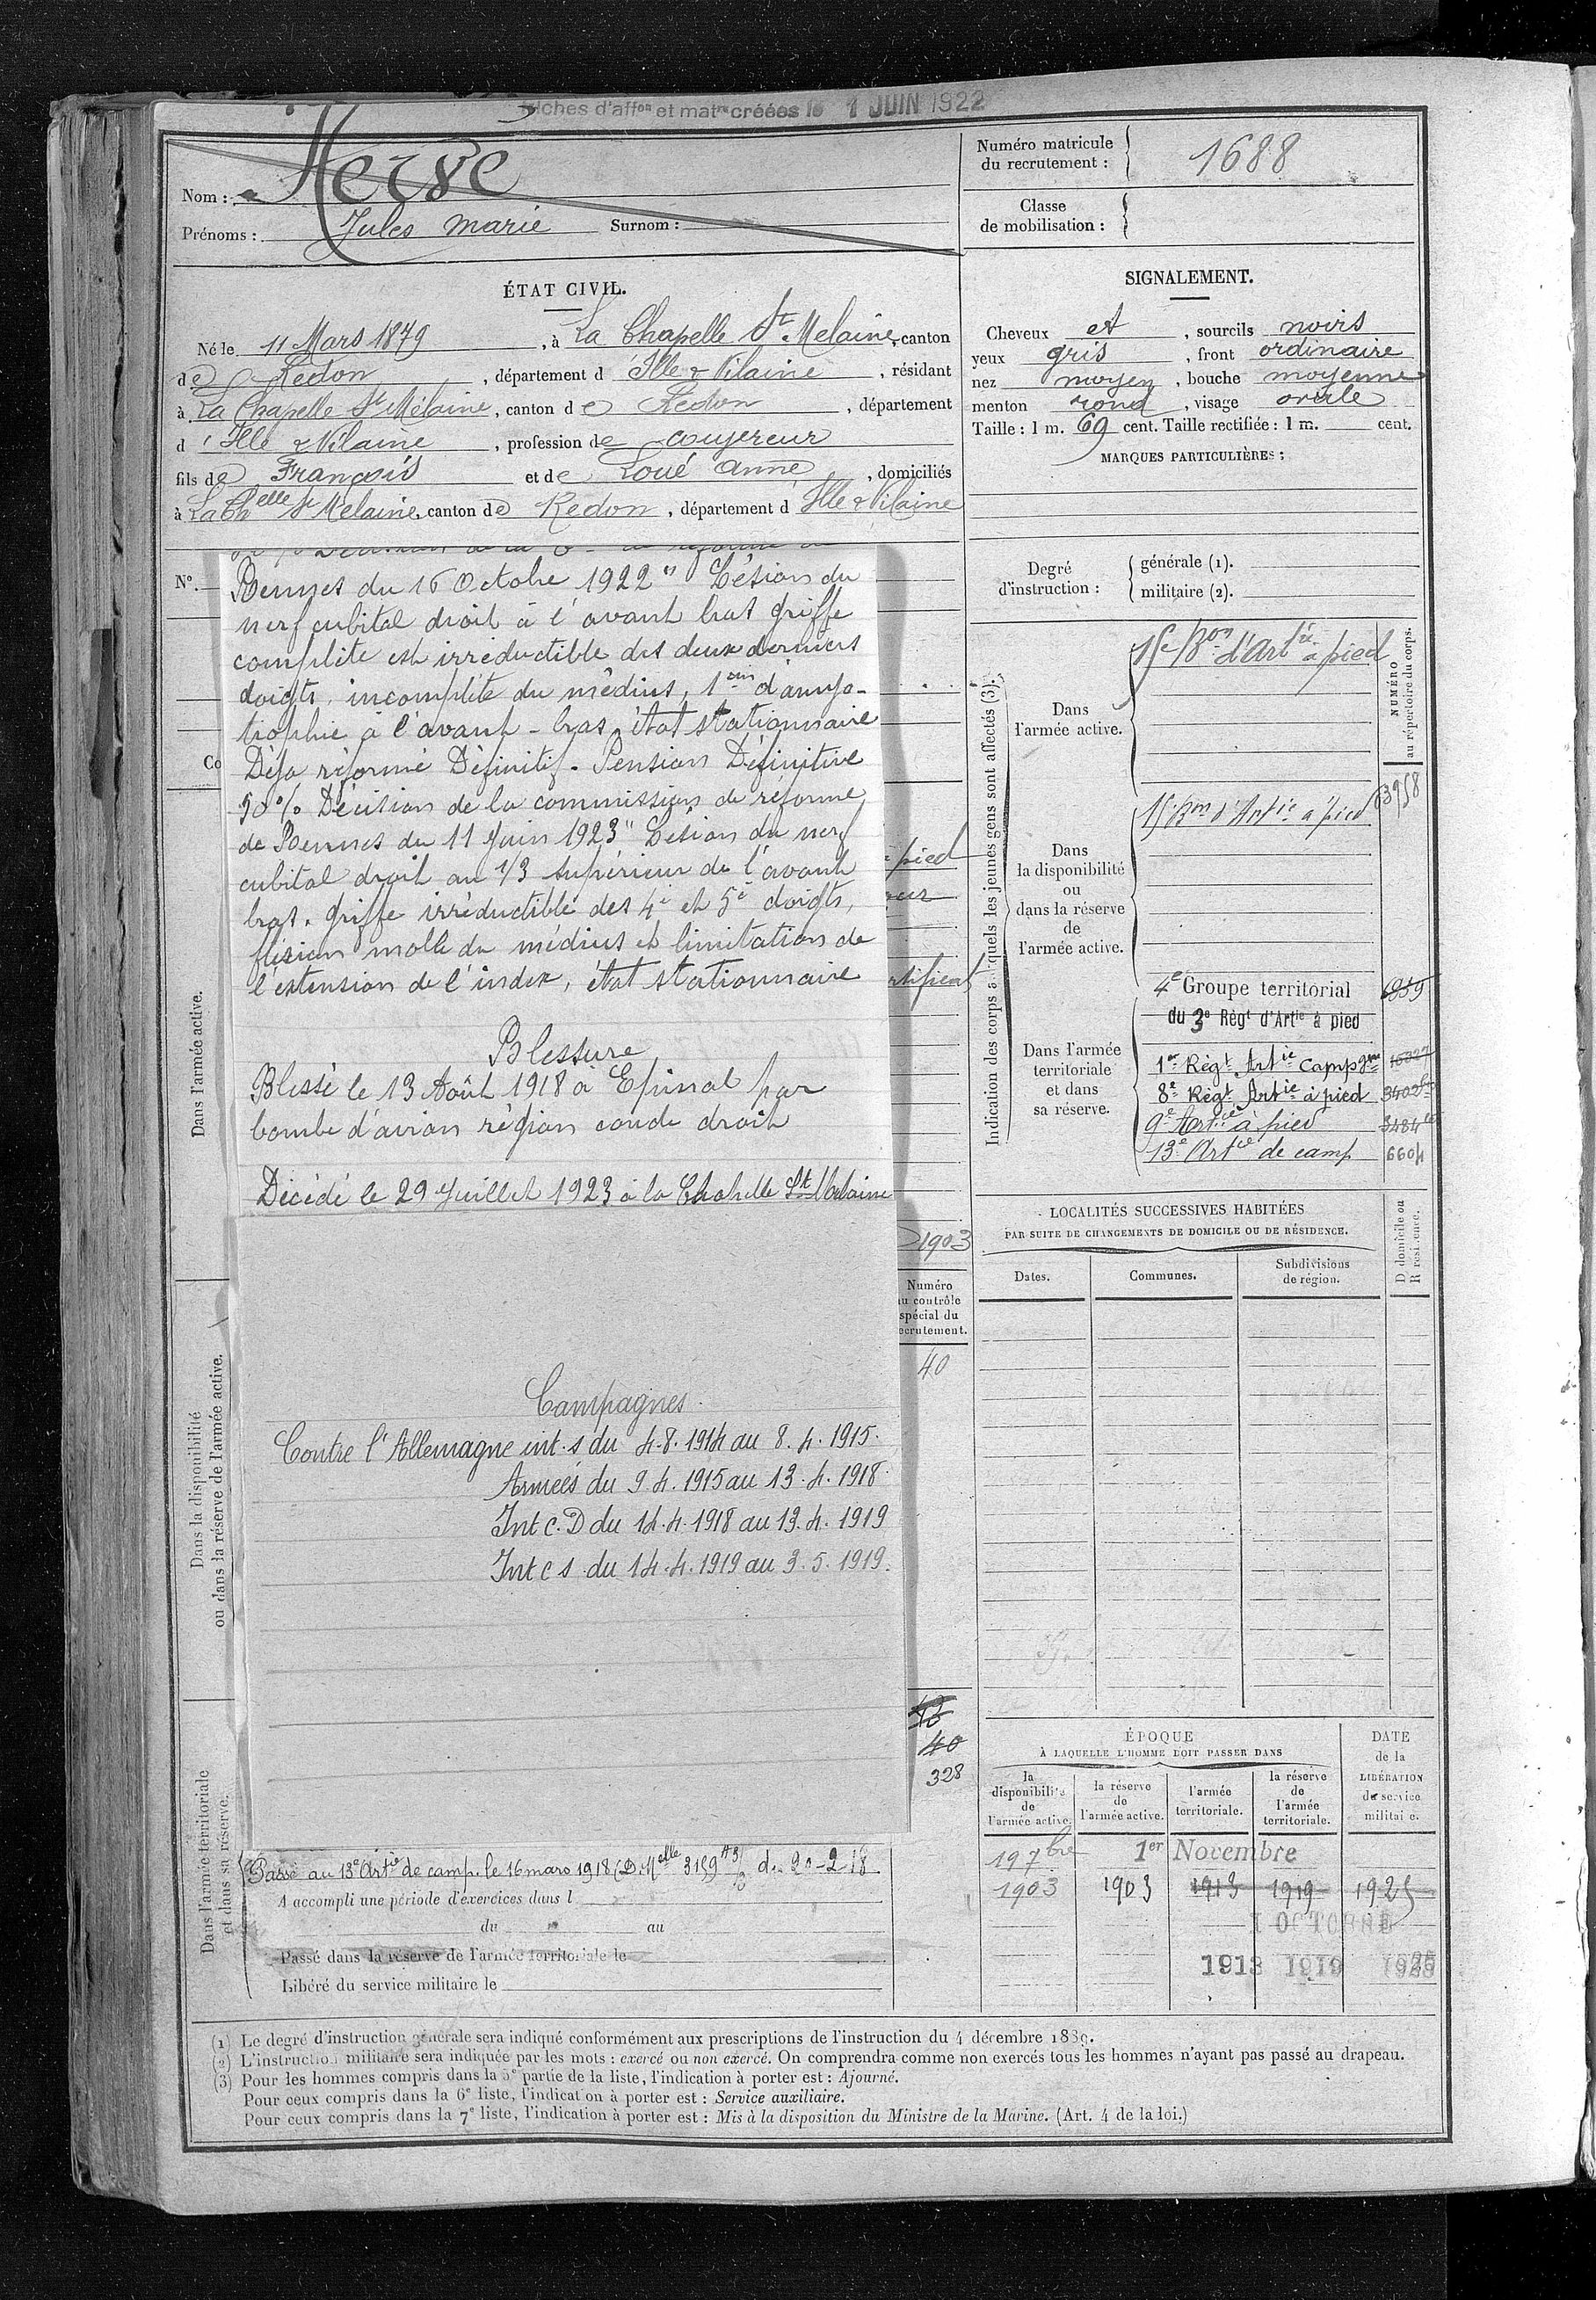 Fiches d'affon et matre créées le 1 JUIN 1922
Nom : Hervé
Prénoms : Jules Marie Surnom :
Numéro matricule du recrutement : 1688
Classe de mobilisation :
ÉTAT CIVIL.
Né le 11 Mars 1879, à La Chapelle St Melaine, canton
de Redon, département d'Ille & Vilaine, résidant
à La Chapelle St Mélaine, canton de Redon, département
d'Ille & Vilaine, profession de
fils de François et de Loué Anne, domiciliés
à La Chelle St Mélaine, canton de Redon, département d Ille & Vilaine
SIGNALEMENT.
Cheveux et, sourcils noirs
yeux gris, front ordinaire
nez moyen, bouche moyenne
menton rond, visage ovale
Taille : 1 m. 69 cent. Taille rectifiée : 1 m. cent.
MARQUES PARTICULIÈRES :
N°.
Co
Rennes du 16 Octobre 1922 " Lésion du
nerf cubital droit à l'avant bras griffe
complète est irréductible des deux derniers
doigts, incomplète du médius, 1 cm d'amyo-
trophie à l'avant-bras, état stationnaire
Déjà réformé Définitif. Pension Définitive
50% Décision de la commission de réforme
de Rennes du 11 Juin 1923 " Lésion du nerf
cubital droit au 1/3 supérieur de l'avant
bras. Griffe irréductible des 4e et 5e doigts,
flexion molle du médius et limitation de
l'extension de l'index, état stationnaire
Blessure
Blessé le 13 Août 1918 à Epinal par
bombe d'avion région coude droit
Décédé le 29 Juillet 1923 à la Chapelle St Melaine
pied
1903
Numéro
au contrôle
spécial du
recrutement.
40
Campagnes
Contre l'Allemagne int. s du 4.8.1914 au 8.4.1915.
Armées du 9.4.1915 au 13.4.1918.
Int C.D du 14.4.1918 au 13.4.1919
Int C s du 14.4.1919 au 3.5.1919.
40
328
Passé au 13e Artie de camp. le 16 mars 1918 (D. Melle 3159 43/3 du 20-2-18
A accompli une période d'exercices dans l
du au
Passé dans la réserve de l'armée territoriale le
Libéré du service militaire le
Dans l'armée active.
Dans la disponibilité
ou dans la réserve de l'armée active.
Dans l'armée territoriale
et dans sa réserve.
Degré d'instruction :
générale (1).
militaire (2).
Indication des corps auxquels les jeunes gens sont affectés (3).
NUMÉRO
au répertoire du corps.
Dans
l'armée active.
15e Bon d'Artie à pied
Dans
la disponibilité
ou
dans la réserve
de
l'armée active.
15e Bon d'Artie à pied
Dans l'armée
territoriale
et dans
sa réserve.
4e Groupe territorial
du 3e Régt d'Artie à pied
1er Régt Artie Campgne
8e Régt Artie à pied
9e Artie à pied
13e Artie de camp 6604
LOCALITÉS SUCCESSIVES HABITÉES
PAR SUITE DE CHANGEMENTS DE DOMICILE OU DE RÉSIDENCE.
Dates. Communes. Subdivisions de région.
D domicile ou
R résidence.
ÉPOQUE
À LAQUELLE L'HOMME DOIT PASSER DANS
DATE
de la
LIBÉRATION
de service
militaire.
la disponibilité de l'armée active.
la réserve de l'armée active.
l'armée territoriale.
la réserve de l'armée territoriale.
19 7bre 1er Novembre
1903 1903 1913 1919 1925
1 OCTOBRE
1913 1919
(1) Le degré d'instruction générale sera indiqué conformément aux prescriptions de l'instruction du 4 décembre 1889.
(2) L'instruction militaire sera indiquée par les mots : exercé ou non exercé. On comprendra comme non exercés tous les hommes n'ayant pas passé au drapeau.
(3) Pour les hommes compris dans la 5e partie de la liste, l'indication à porter est : Ajourné.
Pour ceux compris dans la 6e liste, l'indication à porter est : Service auxiliaire.
Pour ceux compris dans la 7e liste, l'indication à porter est : Mis à la disposition du Ministre de la Marine. (Art. 4 de la loi.)